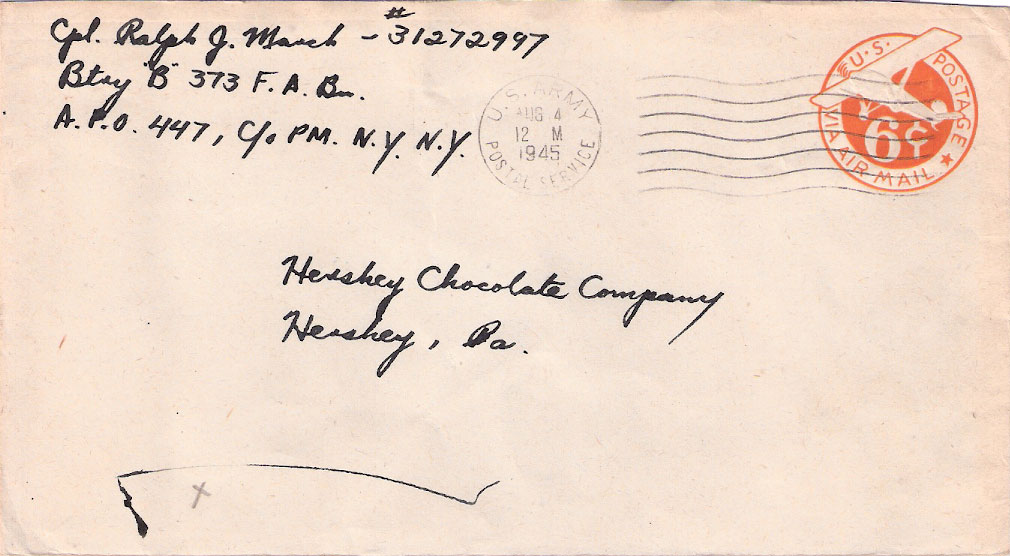 Cpl. Ralph J. March - #31272997
Btry "B" 373 F. A. Bn.
A.P.O. 447, c/o PM. N.Y. N.Y.
U.S. ARMY
AUG 4
12 M
1945
POSTAL SERVICE
U.S. POSTAGE
6¢
VIA AIR MAIL
Hershey Chocolate Company
Hershey, Pa.
x